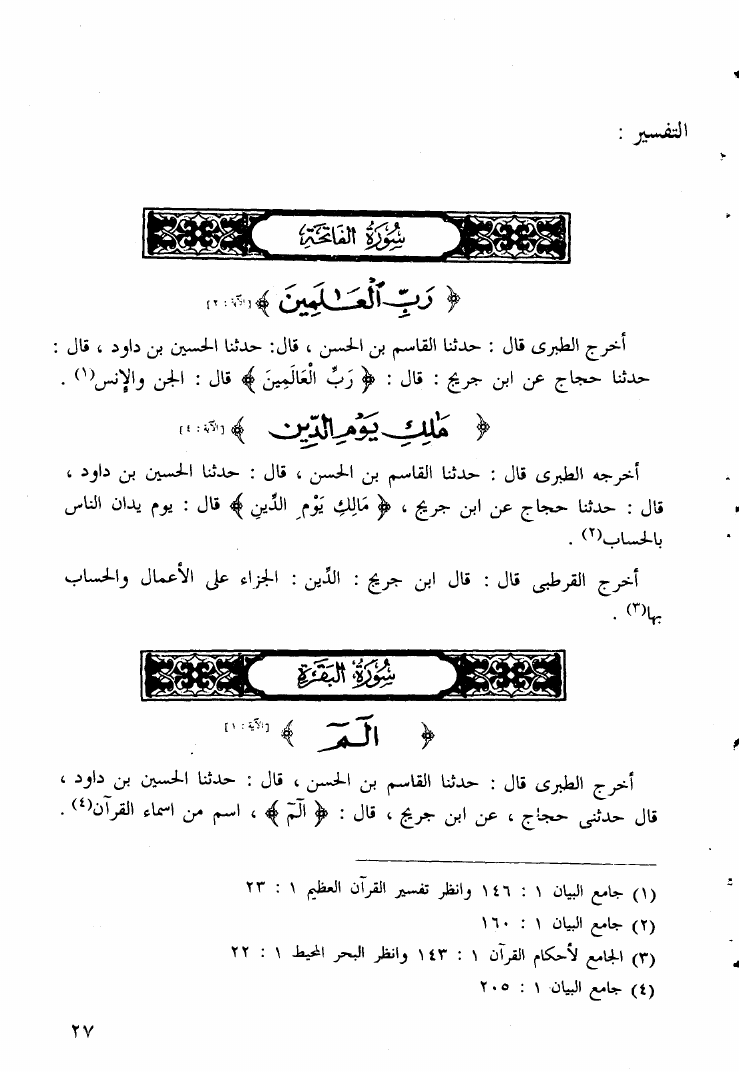 التفسير :
سُورَةُ الفَاتِحَةِ
﴿ رَبِّ ٱلْعَـٰلَمِينَ ﴾ [الآية : ٢]
أخرج الطبرى قال : حدثنا القاسم بن الحسن ، قال: حدثنا الحسين بن داود ، قال :
حدثنا حجاج عن ابن جريج : قال : ﴿ رَبِّ الْعَالَمِينَ ﴾ قال : الجن والإنس(١) .
﴿ مَـٰلِكِ يَوْمِ الدِّينِ ﴾ [الآية : ٤]
أخرجه الطبرى قال : حدثنا القاسم بن الحسن ، قال : حدثنا الحسين بن داود ،
قال : حدثنا حجاج عن ابن جريج ، ﴿ مَالِكِ يَوْمِ الدِّينِ ﴾ قال : يوم يدان الناس
بالحساب(٢) .
أخرج القرطبى قال : قال ابن جريج : الدِّين : الجزاء على الأعمال والحساب
بها(٣) .
سُورَةُ البَقَرَةِ
﴿ الٓمٓ ﴾ [الآية : ١]
أخرج الطبرى قال : حدثنا القاسم بن الحسن ، قال : حدثنا الحسين بن داود ،
قال حدثنى حجاج ، عن ابن جريج ، قال : ﴿ الٓمٓ ﴾ ، اسم من اسماء القرآن(٤) .
(١) جامع البيان ١ : ١٤٦ وانظر تفسير القرآن العظيم ١ : ٢٣
(٢) جامع البيان ١ : ١٦٠
(٣) الجامع لأحكام القرآن ١ : ١٤٣ وانظر البحر المحيط ١ : ٢٢
(٤) جامع البيان ١ : ٢٠٥
٢٧